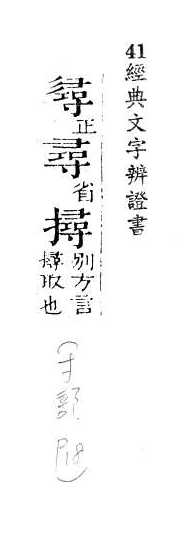 41經典文字辨證書
𢒫正尋省撏別方言
撏取也
(寸部 P18)